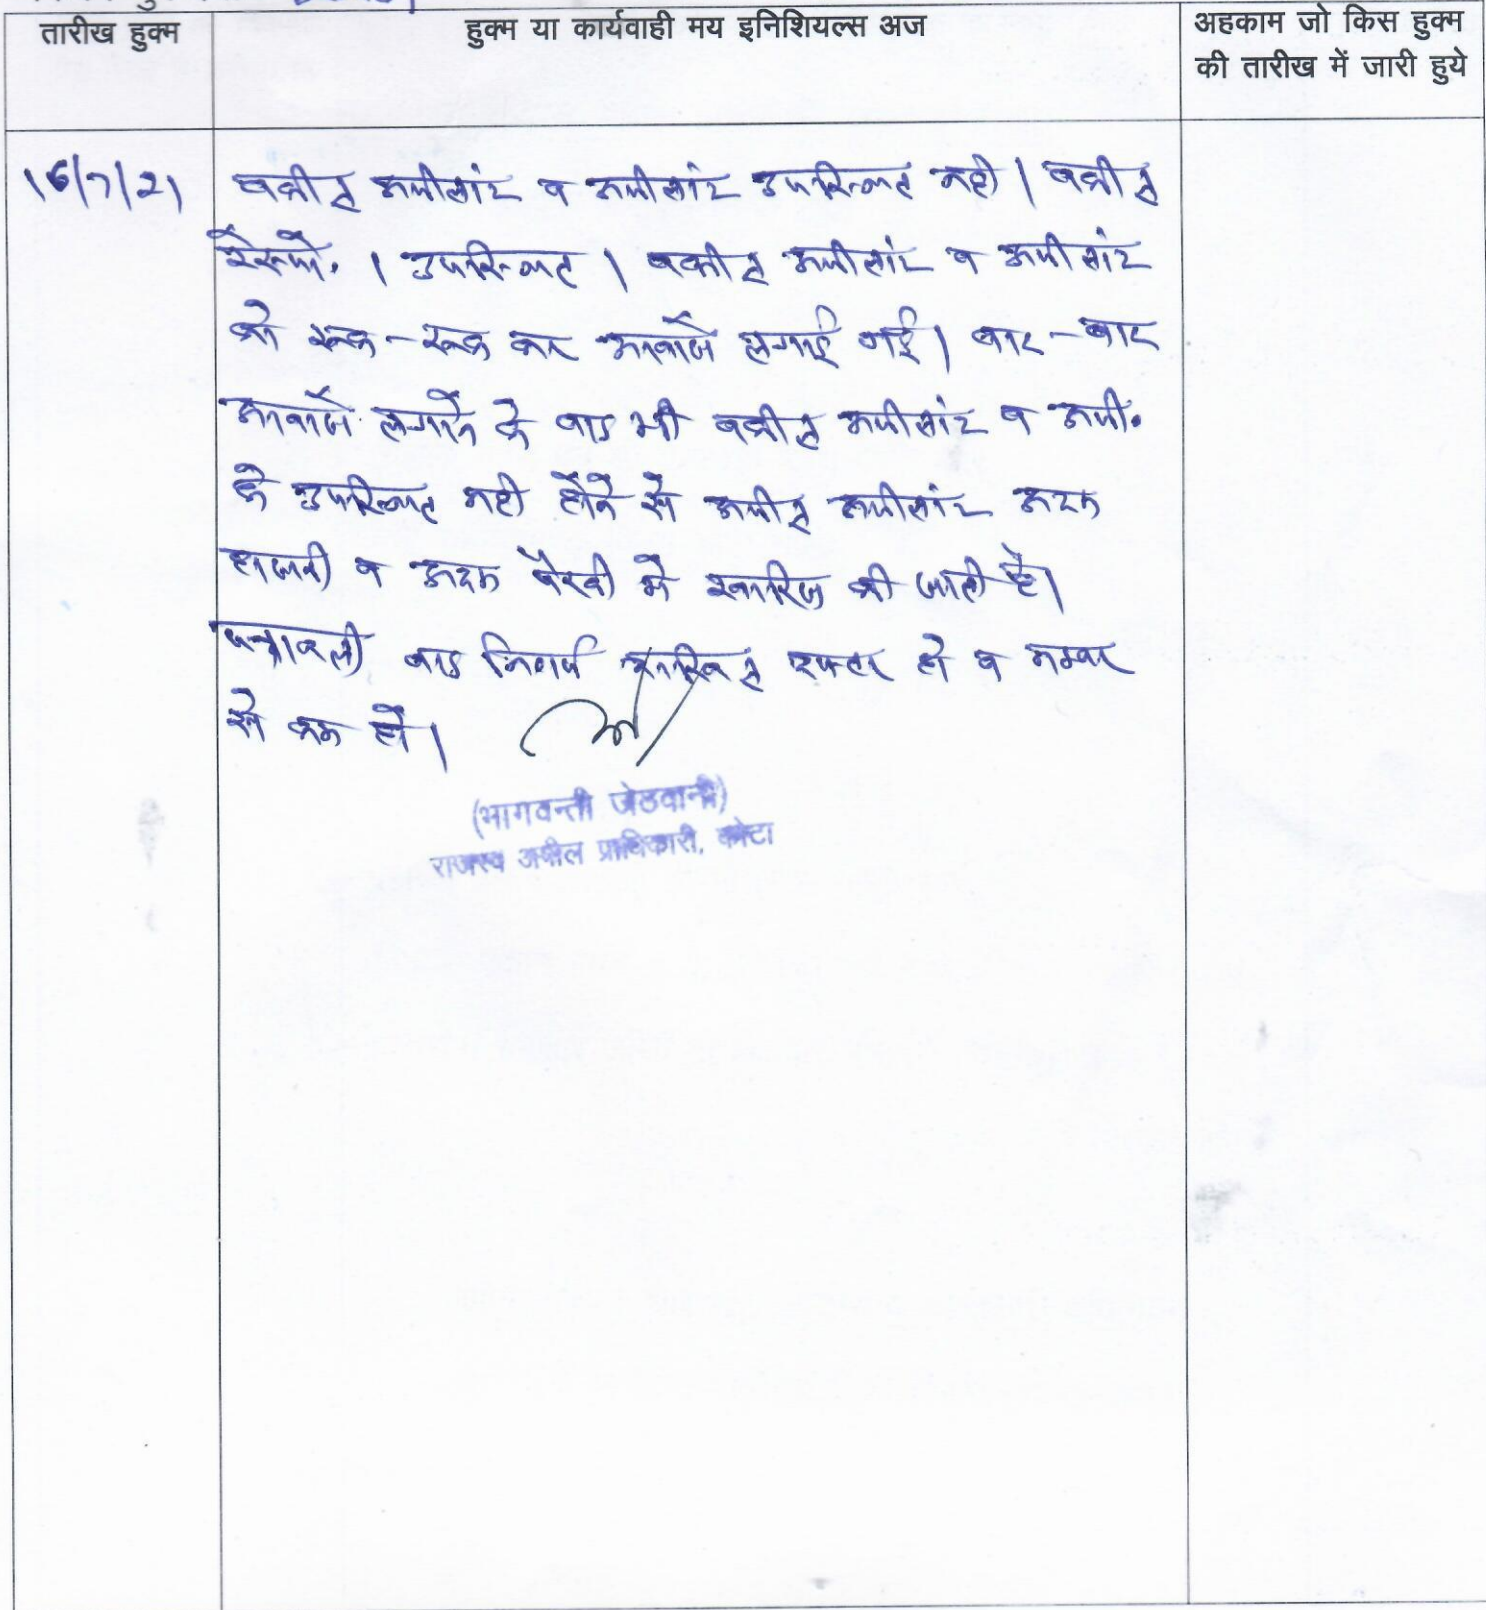 तारीख हुक्म
हुक्म या कार्यवाही मय इनिशियल्स अज
अहकाम जो किस हुक्म
की तारीख में जारी हुये
16/7/21
वकील अपीलांट व अपीलांट उपस्थित नही। वकील
रेस्पो. । उपस्थित। वकील अपीलांट व अपीलांट
को रूक-रूक कर आवाजें लगाई गई। बार-बार
आवाजें लगाने के बाद भी वकील अपीलांट व अपी.
के उपस्थित नही होने से अपील अपीलांट अदम
हाजरी व अदम पैरवी में खारिज की जाती है।
पत्रावली बाद निर्णय दाखिल दफ्तर हो व नम्बर
से कम हो।
(भागवन्ती जेठवानी)
राजस्व अपील प्राधिकारी, कोटा